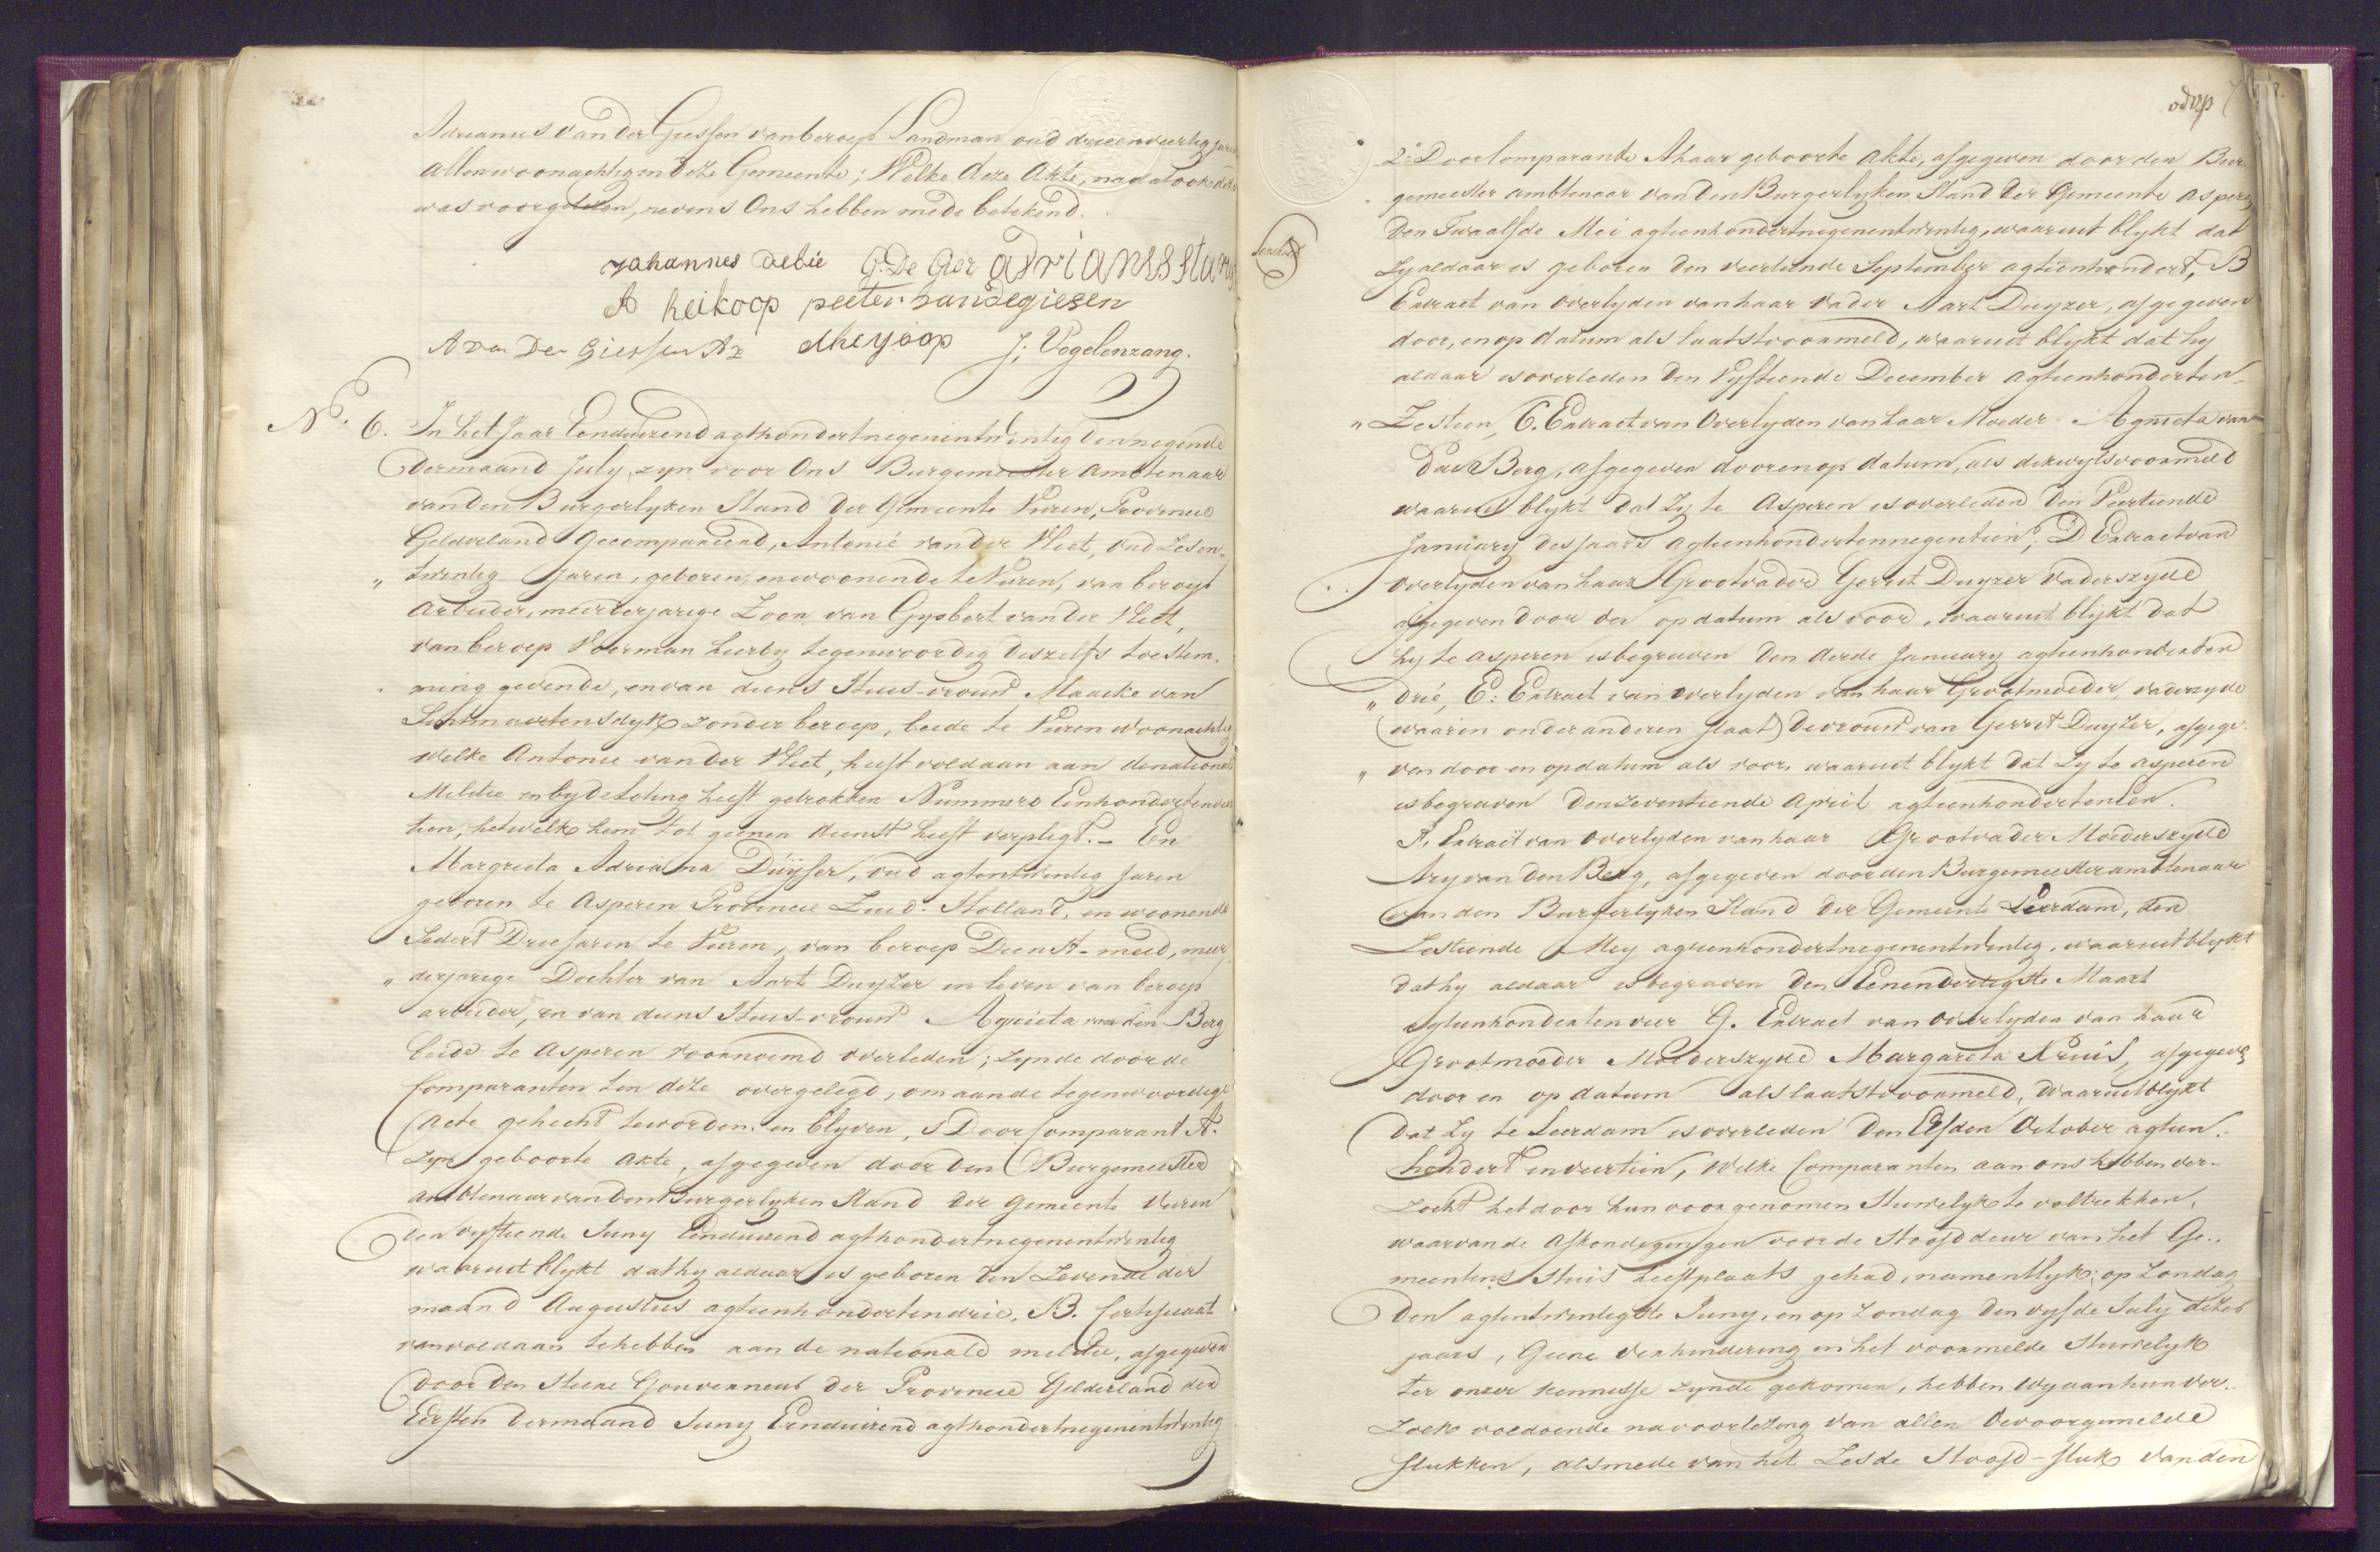 Adrianus van der Giessen van beroep Landman oud drieenveertig jaren
allen woonachtig in deze Gemeente; Welke deze Akte, nadat ook deze
was voorgelezen, nevens Ons hebben mede betekend.
Johannes debie G: De Gier adrianss stam
A heikoop peeter vandegiesen
A van Der Giessen Az dheyoop J; Vogelenzang.
No. 6. In het Jaar Eenduizend agthondertnegenentwintig den negende
der maand July, zyn voor Ons Burgemeester Ambtenaar
van den Burgerlyken Stand der Gemeente Vuren, Provincie
Gelderland Gecompareerd, Antonie van der Vliet, oud Zesen-
„ twentig Jaren, geboren, en woonende te Vuren, van beroep
Arbeider, meerderjarige Zoon van Gysbert van der Vliet,
van beroep Voerman hierby tegenwoordig deszelfs toestem-
ming gevende, en van diens Huis-vrouw Maaike van
Sintmaartensdyk zonder beroep, beide te Vuren woonachtig
welke Antonie van der Vliet, heeft voldaan aan de nationale
Militie en by de Loting heeft getrokken Nummero Eenhondertendrie
tien, hetwelk hem tot geenen dienst heeft verpligt. - En
Margrieta Adriana Duijser, oud agtentwintig Jaren
geboren te Asperen Provincie Zuid-Holland, en woonende
Sedert Drie Jaren te Vuren, van beroep Dienst-meid, meer
„ derjarige Dochter van Aart Duyzer in leven van beroep
arbeider, en van diens Huis-vrouw Agnieta van den Berg
beide te Asperen voornoemd overleden; zynde door de
Comparanten ten deze overgelegd, om aan de tegenwoordige
Acte gehecht te worden en blyven, 1 Door Comparant A.
zyn geboorte Akte, afgegeven door den Burgemeester
ambtenaar van den Burgerlyken Stand der Gemeente Vuren
den vyftiende Juny Eenduizend agthondertnegenentwintig
waaruit blykt dat hy aldaar is geboren den Zevende der
maand Augustus agtienhondertendrie, B. Certificaat
van voldaan te hebben aan de nationale militie, afgegeven
door den Heere Gouverneur der Provincie Gelderland den
Eersten der maand Juny Eenduizend agthondertnegenentwintig
2e. Door Comparante A haar geboorte Akte, afgegeven door den Bur
gemeester ambtenaar van den Burgerlyken Stand der Gemeente Asperen
den Twaalfde Mei agtienhondertnegenentwintig, waaruit blykt dat
Zy aldaar is geboren den veertiende September agtienhondert, B
Extract van Overlyden van haar Vader Aart Duyzer, afgegeven
door, en op datum als laatstvoormeld, waaruit blykt dat hy
aldaar is overleden den Vyftiende December agtienhonderten-
„ Zestien, C. Extract van Overlyden van haar Moeder Agnieta van
den Berg, afgegeven door en op datum, als dikwylsvoormeld
waaruit blykt dat Zy te Asperen is overleden den Veertiende
January des Jaars agtienhondertennegentien; D Extract van
Overlyden van haar Grootvader Gerrit Duyzer vaderszyde
afgegeven door den op datum als voor, waaruit blykt dat
hy te Asperen is begraven den derde January agtienhonderten
„ drie, E: Extract van Overlyden van haar Grootmoeder, vaderzyde
(waarin onder anderen staat) de vrouw van Gerrit Duyzer, afgege-
„ ven door en op datum als voor, waaruit blykt dat zy te Asperen
is begraven den zeventiende April agtienhondertentien.
F. Extract van Overlyden van haar Grootvader Moederszyde
Ary van den Berg, afgegeven door den Burgemeester ambtenaar
van den Burgerlyken Stand der Gemeente Leerdam, den
Zestiende Mey agtienhondertnegenentwintig, waaruit blykt
dat hy aldaar is begraven den Eenendertigste Maart
agtienhondertenvier G. Extract van Overlyden van haar
Grootmoeder Moederszyde Margareta Kruis, afgegeven
door en op datum als laatstvoormeld, waaruit blykt
dat Zy te Leerdam is overleden den Elfden October agtien-
hondert en veertien, Welke Comparanten aan ons hebben ver-
zocht het door hun voorgenomen Huwelyk te voltrekken,
waarvan de Afkondigingen voor de Hoofddeur van het Ge-
meentens Huis heeft plaats gehad, namentlyk; op Zondag
den agtentwintigste Juny, en op Zondag den vyfde July dezes
jaars, Geene verhindering in het voormelde Huwelyk
ter onzer kennisse zynde gekomen, hebben Wy aan hun ver-
zoek voldoende na voorlezing van allen de voorgemelde
stukken, alsmede van het Zesde Hoofd-stuk van den